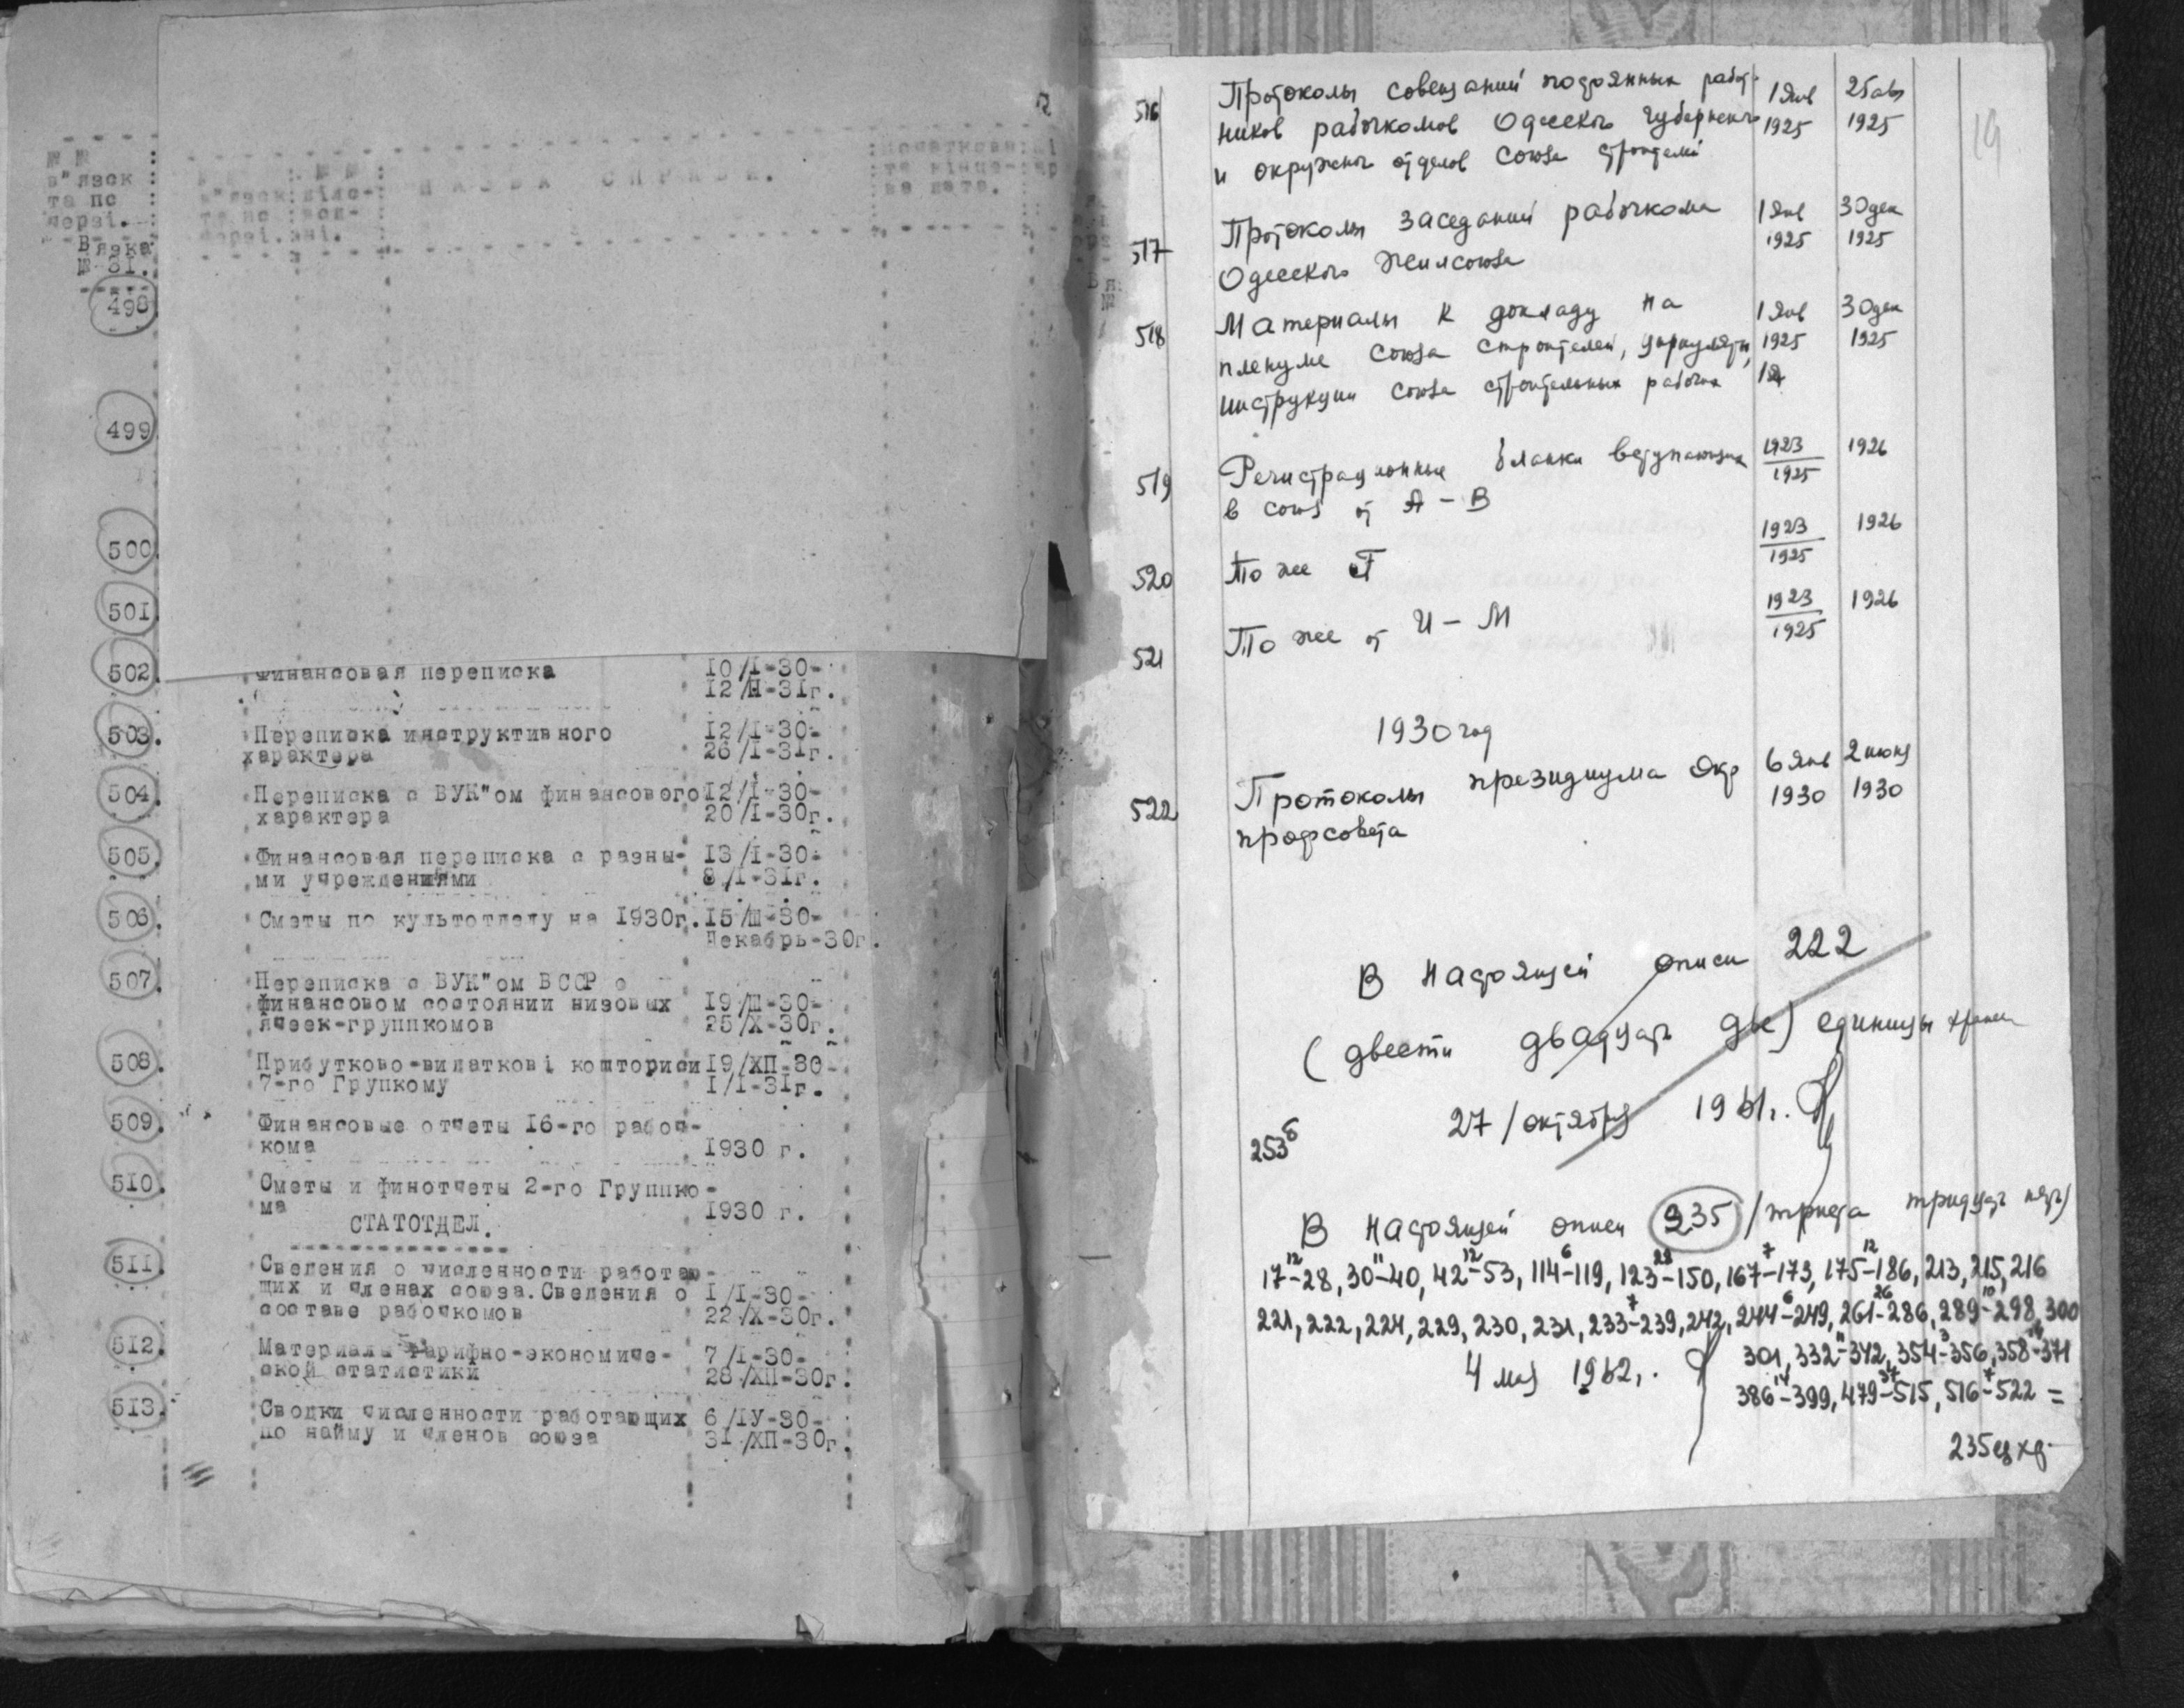 № №
в"язок
та по
черзі.
В язка
№ 31.
498
499
500
501
НАЗВА СПРАВИ.
502. Финансовая переписка 10/I-30-
12/П-31г.
503. Переписка инструктивного 12/I-30-
характера 26/I-31г.
504. Переписка с ВУК"ом финансового 12/I-30-
характера 20/I-30г.
505. Финансовая переписка с разны- 13/I-30-
ми учреждениями 8/I-31г.
506. Сметы по культотделу на 1930г. 15/Ш-30-
Декабрь-30г.
507. Переписка с ВУК"ом ВССР о
финансовом состоянии низовых 19/Ш-30-
ячеек-группкомов 25/X-30г.
508. Прибутково-видаткові кошториси 19/ХП-30-
7-го Групкому I/I-31г.
509. Финансовые отчеты 16-го рабоч-
кома 1930 г.
510. Сметы и финотчеты 2-го Группко-
ма 1930 г.
СТАТОТДЕЛ.
511. Сведения о численности работаю-
щих и членах союза. Сведения о I/I-30-
составе рабочкомов 22/X-30г.
512. Материалы тарифно-экономиче- 7/I-30-
ской статистики 28/ХП-30г.
513. Сводки численности работающих 6/IУ-30-
по найму и членов союза 31/ХП-30г.
516 Протоколы совещаний работ- 1 Янв 25 авг
ников рабочкомов Одесского губернского 1925 1925
и окружного отделов союза строителей
517 Протоколы заседаний рабочкома 1 Янв 30 дек
Одесского жилсоюза 1925 1925
518 Материалы к докладу на 1 Янв 30 дек
пленуме союза строителей, циркуляры, 1925 1925
инструкции союза строительных рабочих
519 Регистрационные бланки вступающих 1923/1925 1926
в союз от А - В
520 То же Г 1923/1925 1926
521 То же от И - М 1923/1925 1926
1930 год
522 Протоколы президиума Окр 6 Янв 2 июня
профсовета 1930 1930
В настоящей описи 222
(двести двадцать две) единицы хранен
27/октября 1961г.
253б
В настоящей описи 235 /триста тридцать пять)
17-12-28, 30-11-40, 42-12-53, 114-6-119, 123-28-150, 167-7-173, 175-12-186, 213, 215, 216
221, 222, 224, 229, 230, 231, 233-7-239, 242, 244-6-249, 261-26-286, 289-10-298, 300
301, 332-11-342, 354-3-356, 358-14-371
4 мая 1962г.
386-14-399, 479-37-515, 516-7-522 =
235 ед хр.